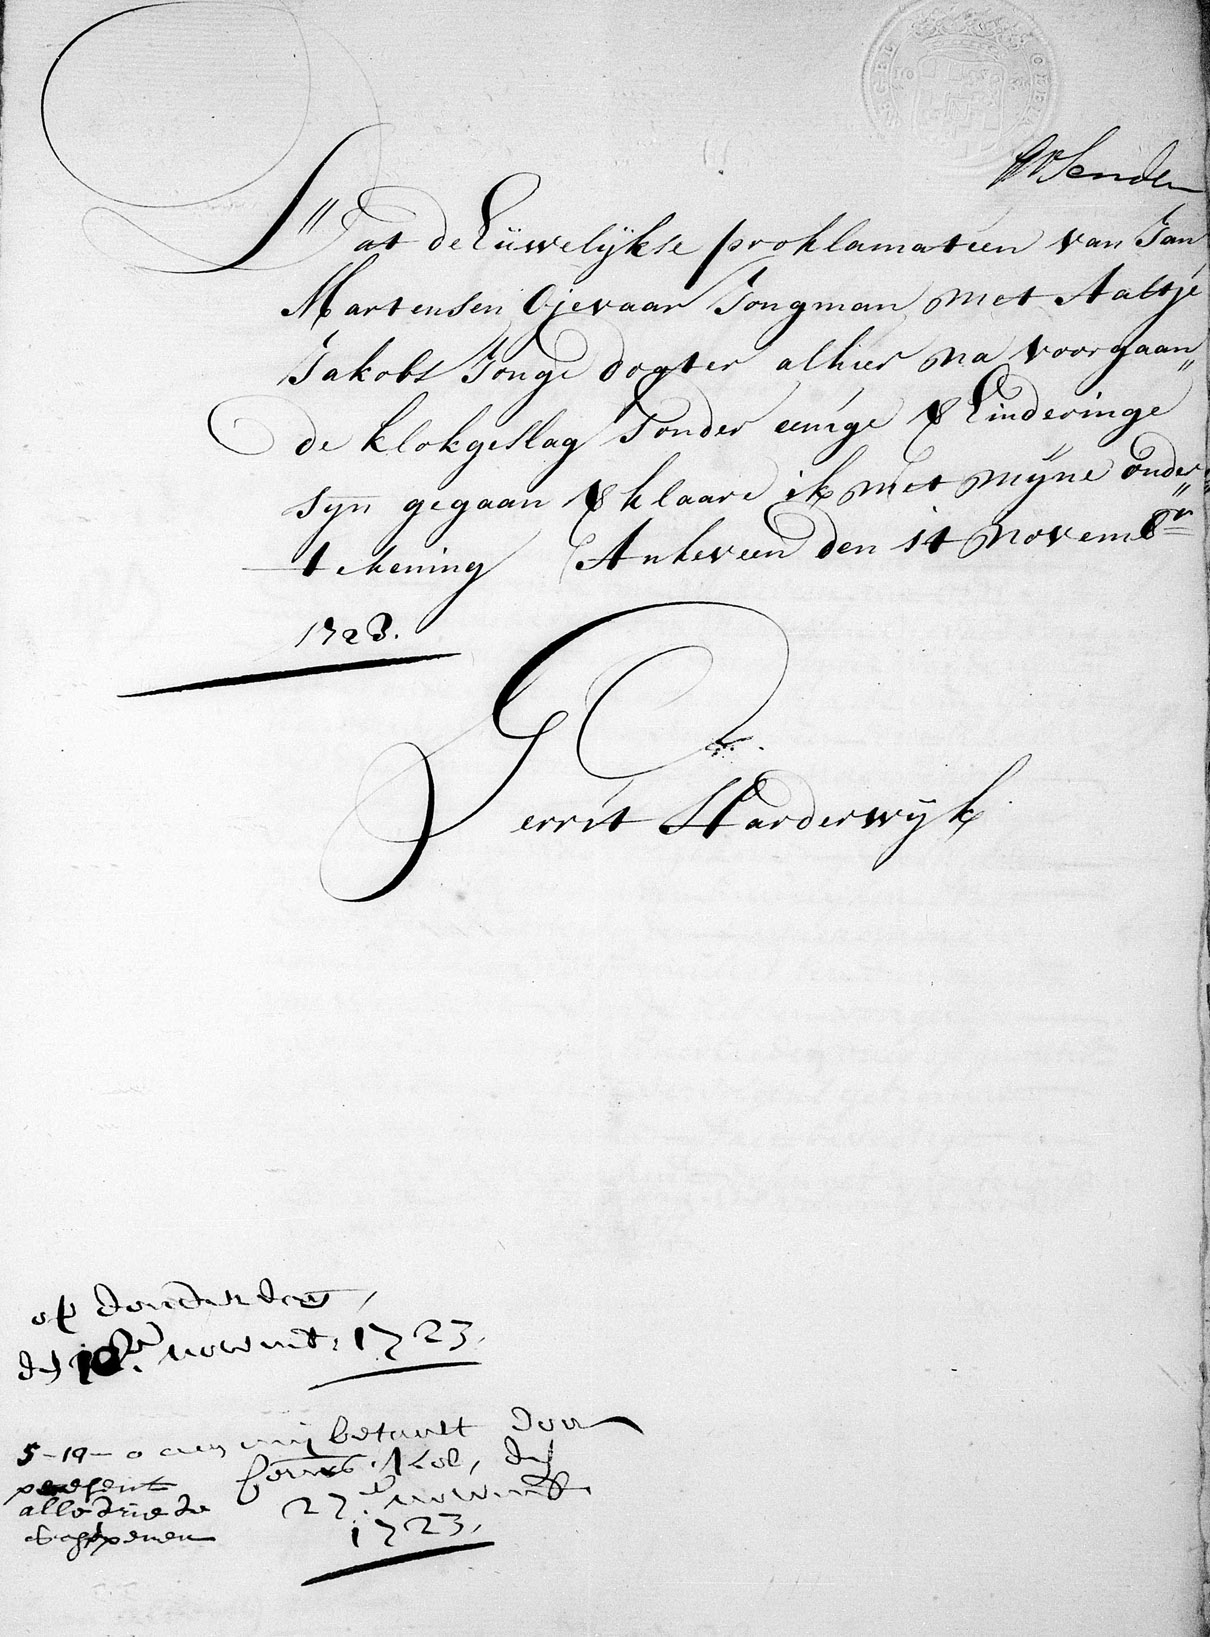 Dat de Euwelÿkse proklamatien van Jan
Martensen Ojevaar Jongman met Aaltje
Jakobs Jonge dogter alhier na voorgaan„
de klokgeslag sonder eenige v̶hinderinge
syn gegaan v̶klaare ik met mÿne onder„
tekening Ankeveen den 14 novembr
1723.
Gerrit Harderwÿk
op donderdag
den novemb: 1723.
5-19-0 aen mij betaelt door
Kol, den
present
alle drie de
27e novemb
Schepenen
1723.